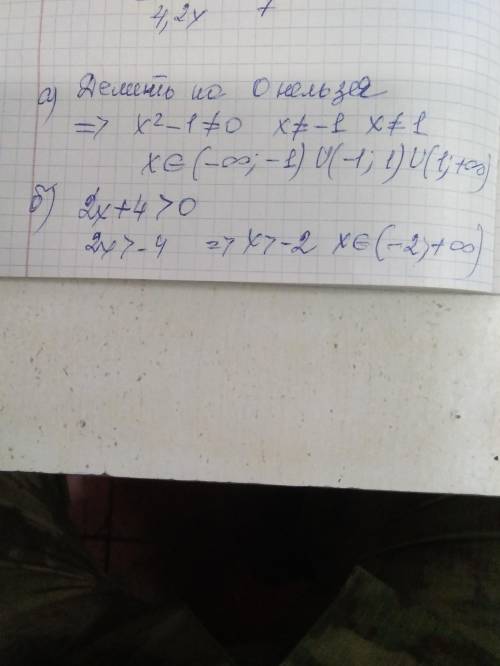 4,2y 7
а) Делить на 0 нельзя
=> x²-1≠0 x≠-1 x≠1
x∈(-∞;-1)∪(-1;1)∪(1;+∞)
б) 2x+4>0
2x>-4 => x>-2 x∈(-2;+∞)